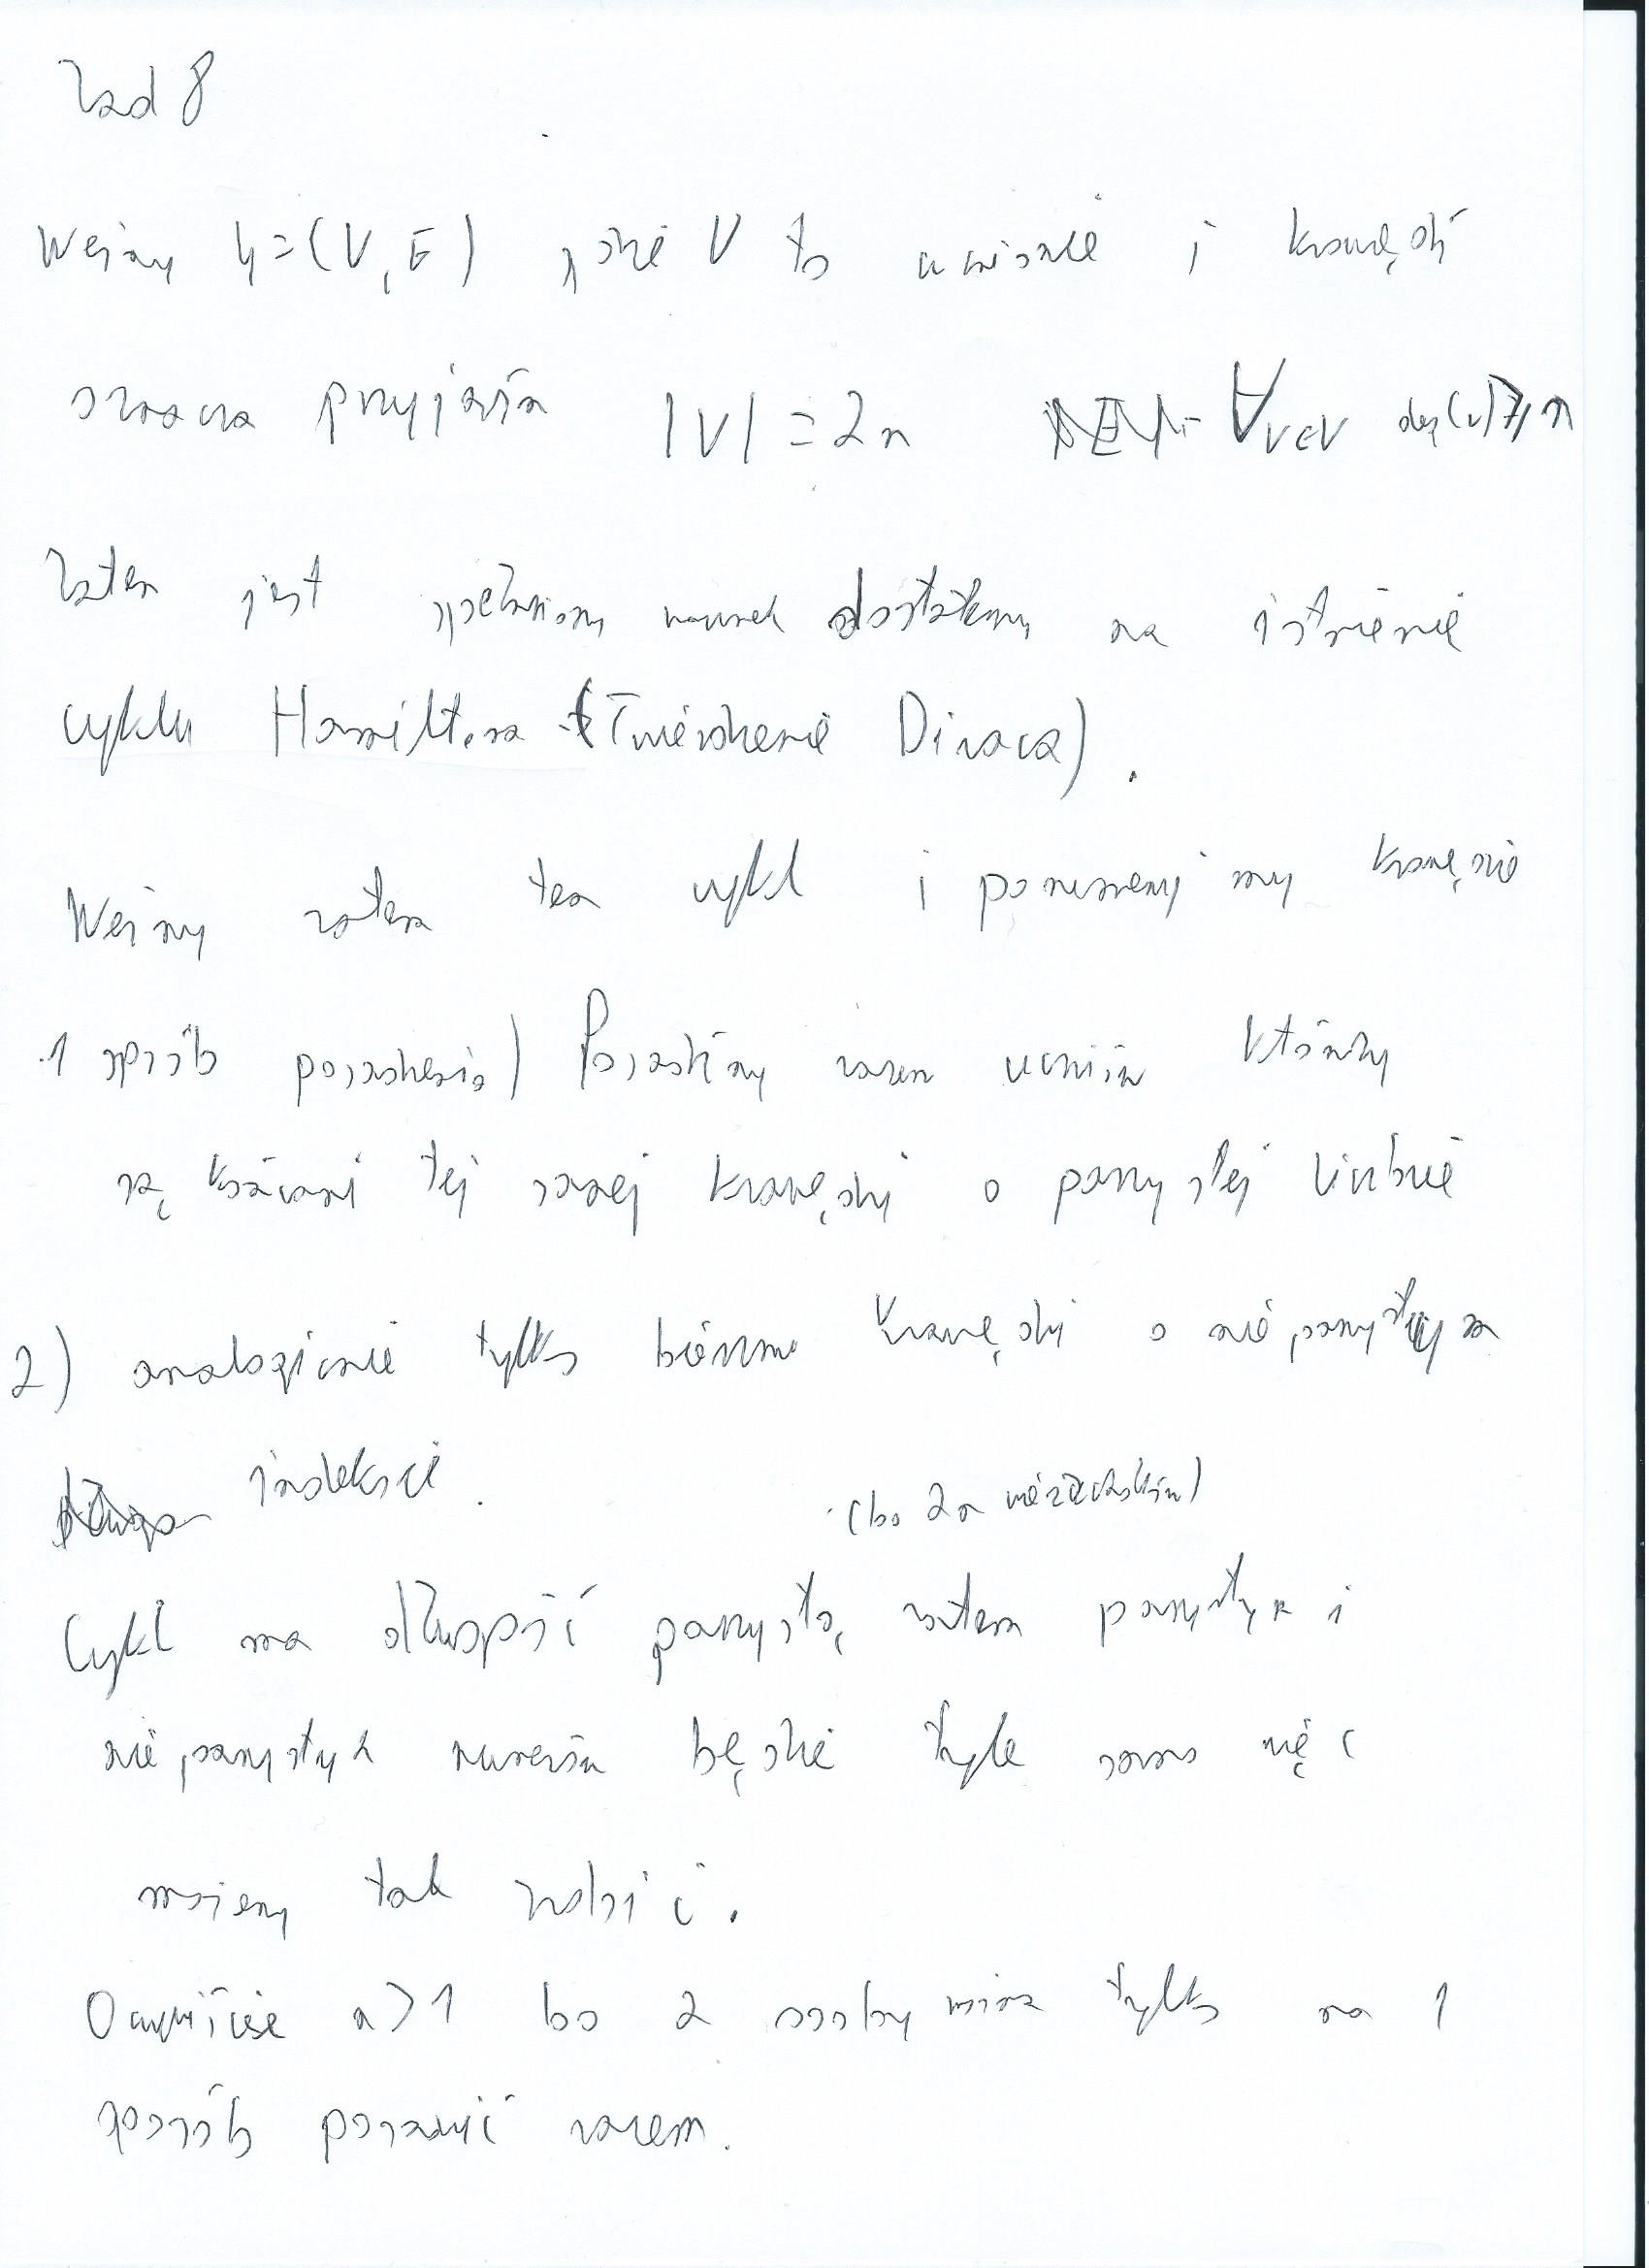 Zad 8
Weźmy G=(V,E) gdzie V to uczniowie i krawędź
oznacza przyjaźń |V| = 2n ∀v∈V deg(v) ≥ n
Zatem jest spełniony warunek dostateczny na istnienie
cyklu Hamiltona (Twierdzenie Diraca).
Weźmy zatem ten cykl i ponumerujmy krawędzie
1 sposób posadzenia) Posadźmy razem uczniów którzy
są końcami tej samej krawędzi o parzystej liczbie
2) analogicznie tylko bierzemy krawędzi o nieparzystym
indeksie.
(bo 2n wierzchołków)
Cykl ma długość parzystą zatem parzystych i
nieparzystych numerów będzie tyle samo więc
możemy tak zrobić.
Oczywiście n>1 bo 2 osoby można tylko na 1
sposób posadzić razem.